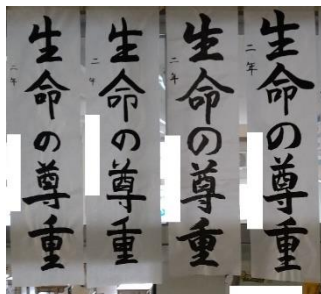 生命の尊重
二年
生命の尊重
二年
生命の尊重
二年
生命の尊重
二年